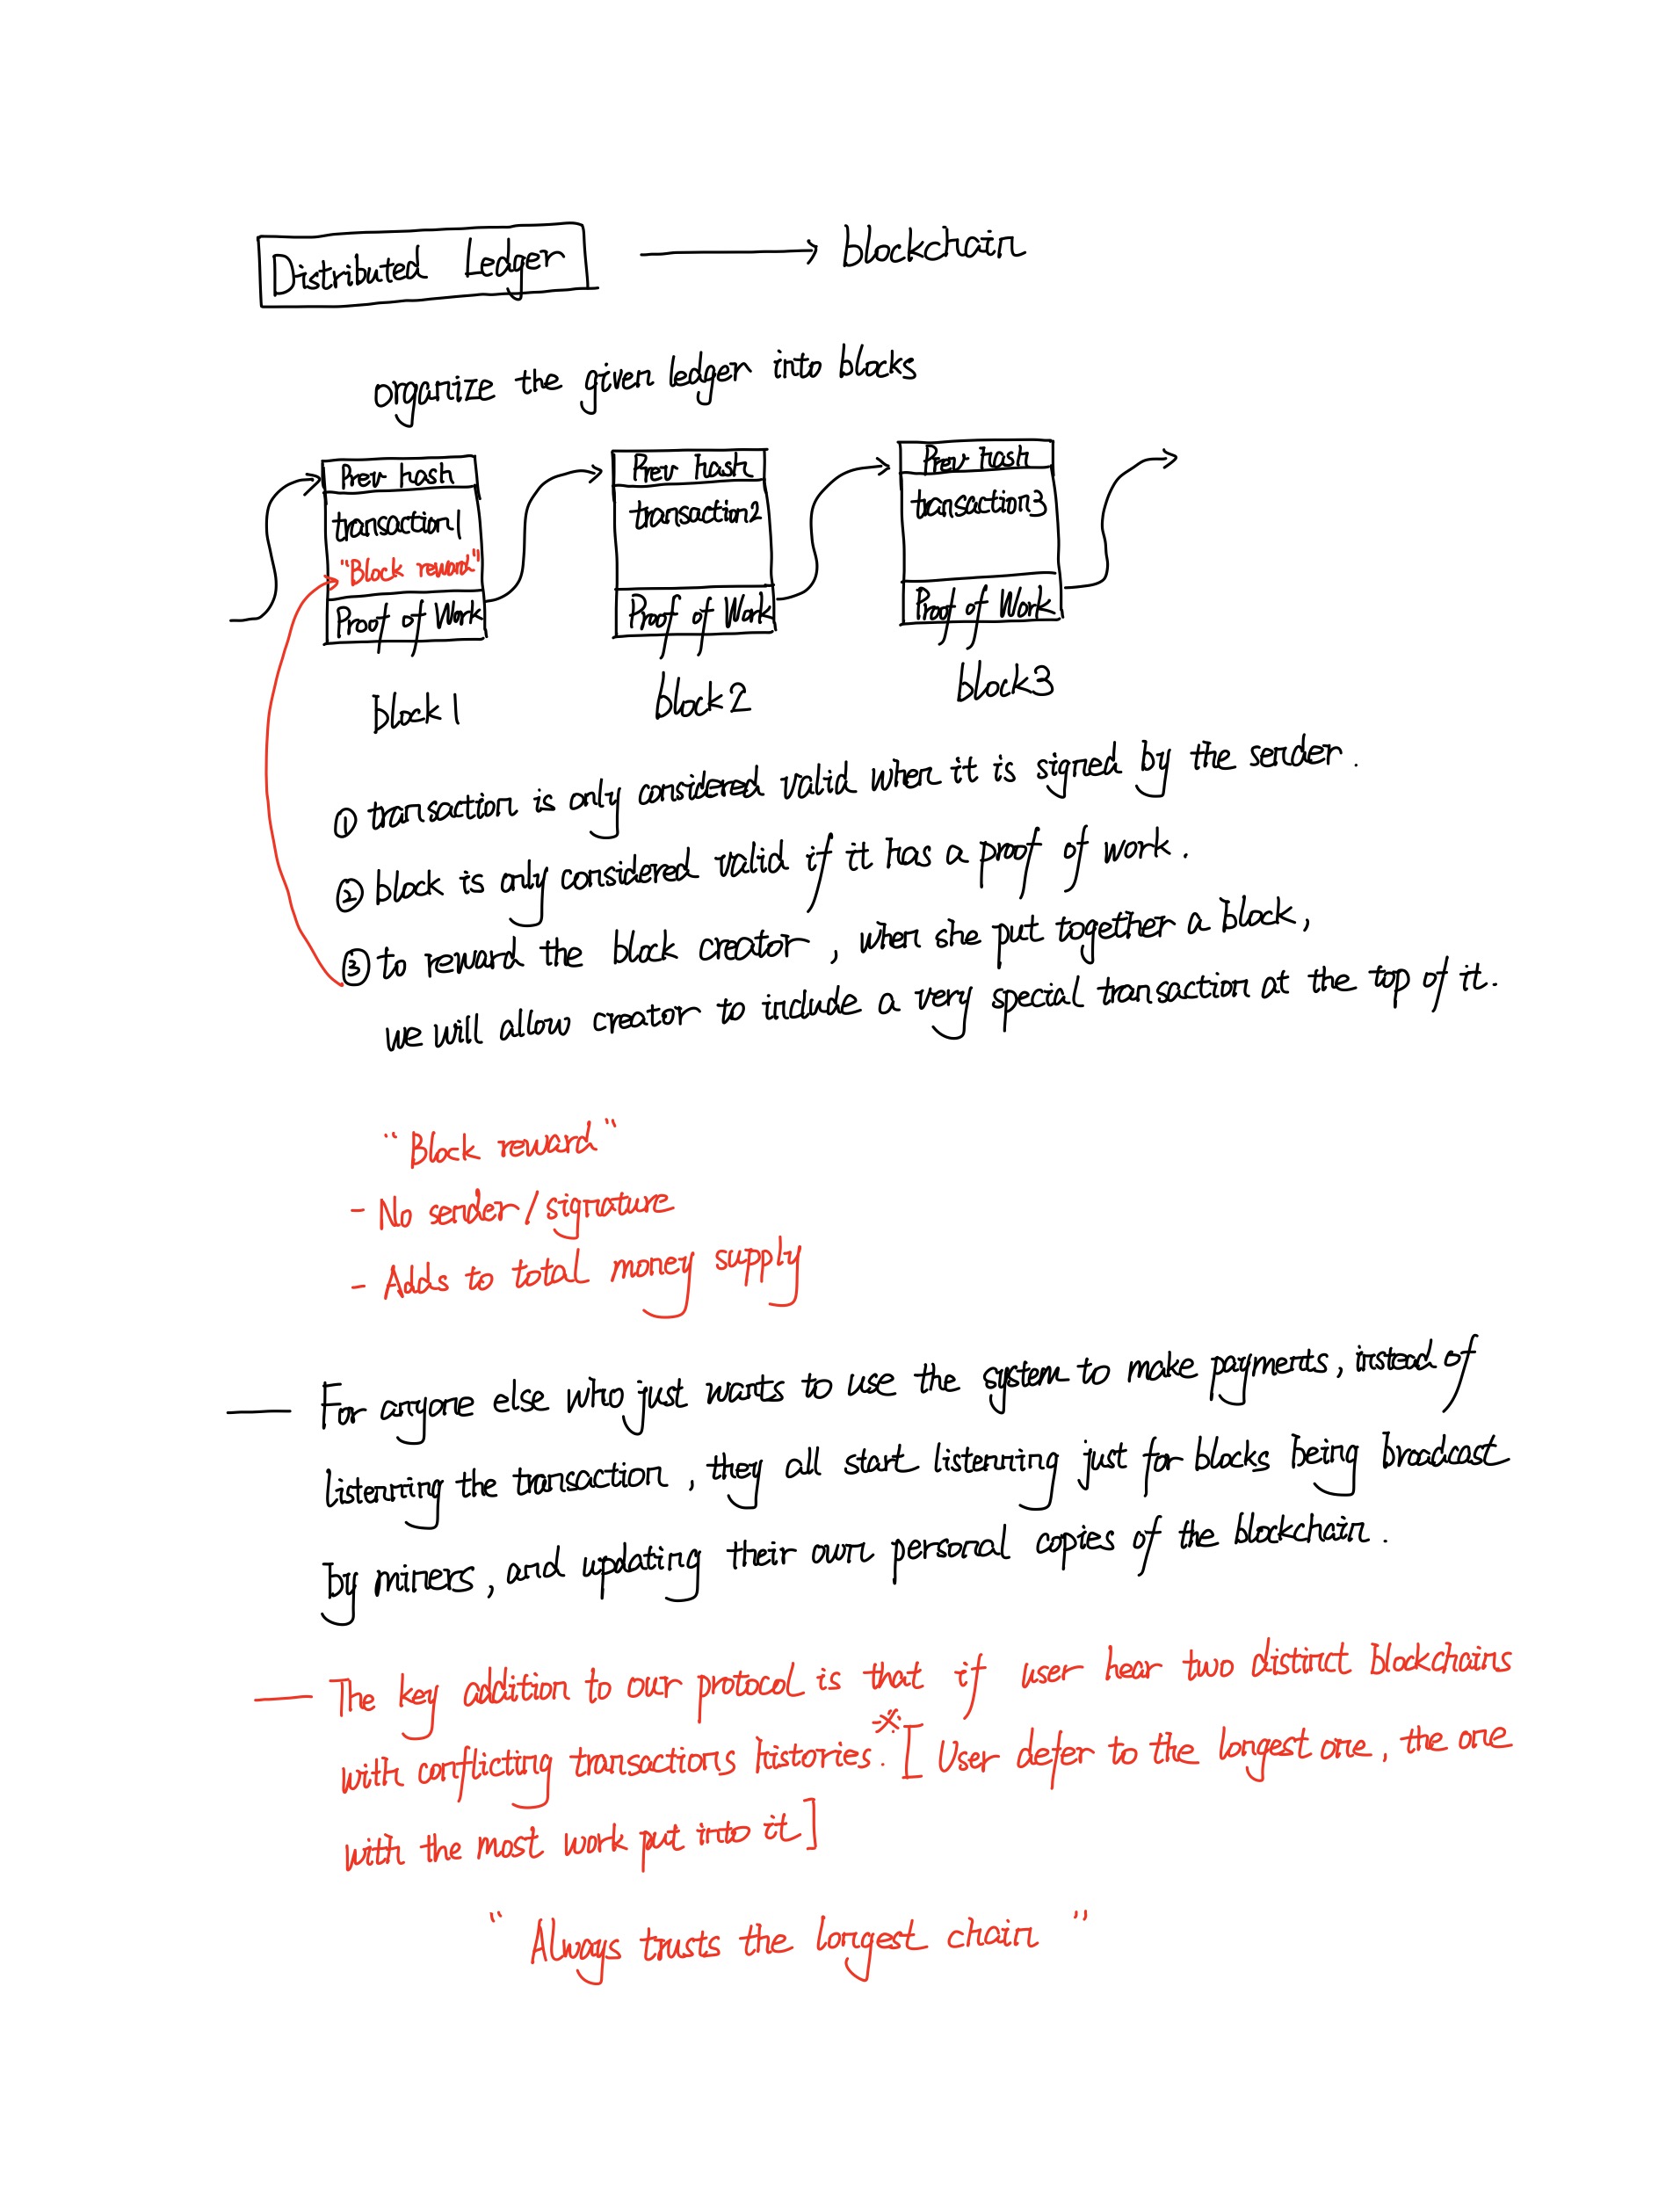 Distributed Ledger → blockchain
organize the given ledger into blocks
Prev hash
transaction1
"Block reward"
Proof of Work
block1
Prev hash
transaction2
Proof of Work
block2
Prev hash
transaction3
Proof of Work
block3
① transaction is only considered valid when it is signed by the sender.
② block is only considered valid if it has a proof of work.
③ to reward the block creator, when she put together a block,
we will allow creator to include a very special transaction at the top of it.
"Block reward"
- No sender/signature
- Adds to total money supply
— For anyone else who just wants to use the system to make payments, instead of
listenning the transaction, they all start listenning just for blocks being broadcast
by miners, and updating their own personal copies of the blockchain.
— The key addition to our protocol is that if user hear two distinct blockchains
with conflicting transactions histories. ※ [User defer to the longest one, the one
with the most work put into it]
"Always trusts the longest chain"